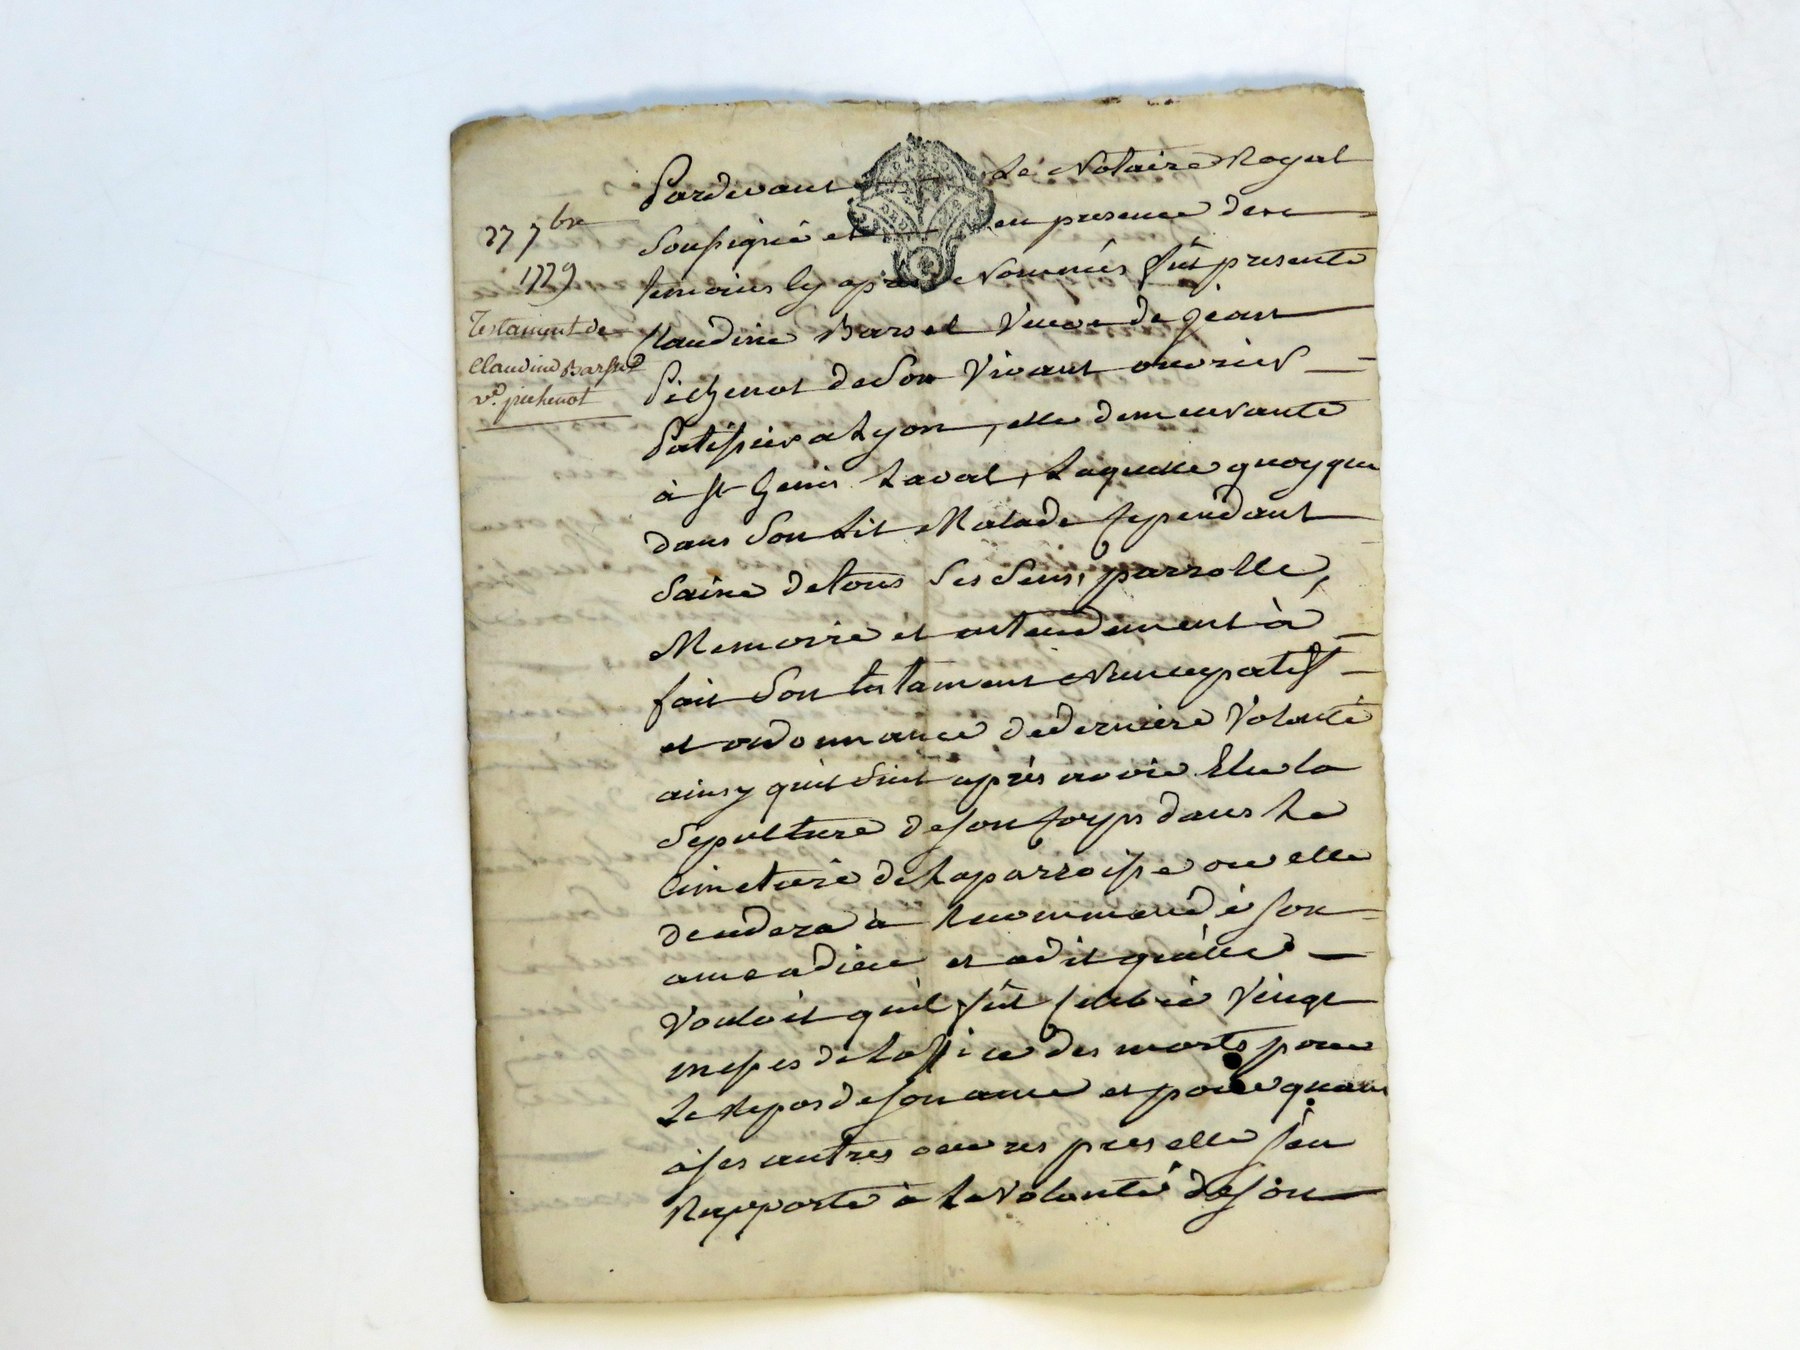 27 7bre
1729
Testament de
Claudine Barsel
ve. pichenot
Pardevant Le Notaire Royal
Soussigné et en presence des
temoins cy apres Nommés fût presente
Claudine Barsel Veuve de jean
Pichenot de Son Vivant ouvrier
Patissier a Lyon, elle demeurante
à st Genis Laval, Laquelle quoyque
dans Son Lit Malade Cependant
Saine de tous Ses Sens, parrolle,
Memoire et entendement à
fait Son testament Nuncupatif
et ordonnance de derniere Volonté
ainsy quil Suit après avoir Elu la
Sepulture de son Corps dans Le
Cimetiere de La parroisse ou elle
à Recommandé son
ame a dieu et a dit quelle
Vouloit quil fût Celebré Vingt
messes de Loffice des morts pour
Le Repos de son ame et pour quant
à ses autres oeuvres pies elle s'en
Rapporte à La Volonté de son